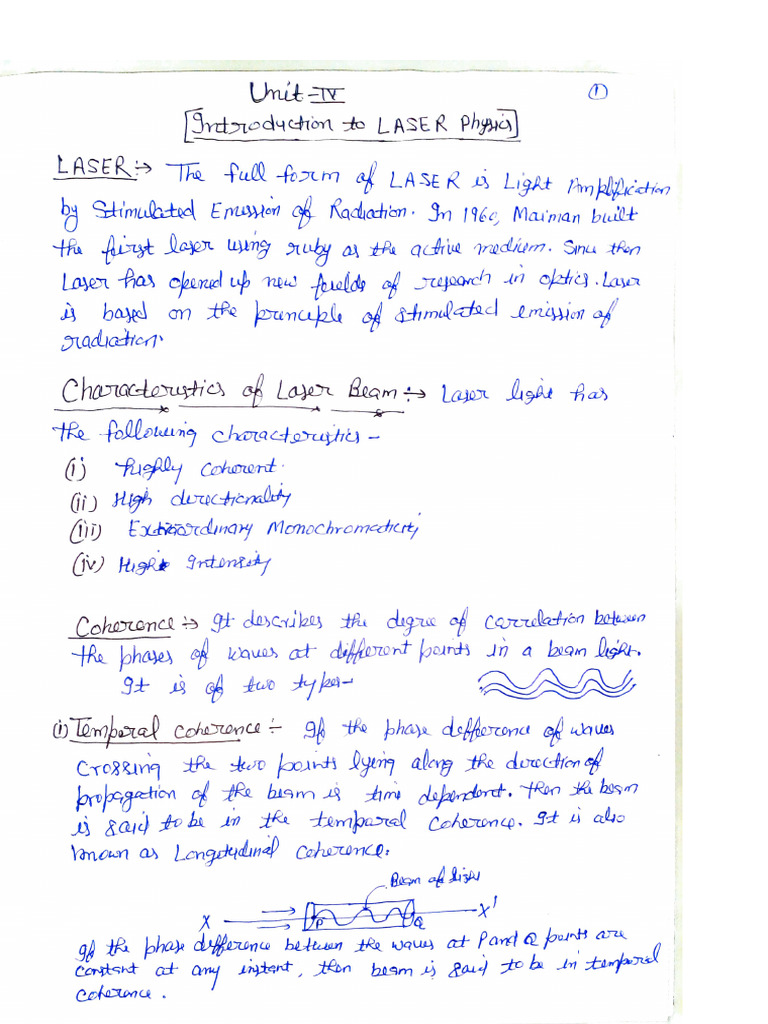 Unit-IV
①
[Introduction to LASER Physics]
LASER :→ The full form of LASER is Light Amplification
by Stimulated Emission of Radiation. In 1960, Maiman built
the first laser using ruby as the active medium. Since then
Laser has opened up new fields of research in optics. Laser
is based on the principle of stimulated emission of
radiation.
Characteristics of Laser Beam :→ Laser light has
the following characteristics -
(i) highly coherent.
(ii) High directionality
(iii) Extraordinary Monochromaticity
(iv) High Intensity
Coherence :→ It describes the degree of carrelation between
the phases of waves at different points in a beam light.
It is of two types-
(i) Temporal coherence :- If the phase defference of waves
crossing the two points lying along the direction of
propagation of the beam is time dependent. then the beam
is said to be in the temparal coherence. It is also
known as Longitudinal coherence.
Beam of light
X P Q X'
If the phase difference between the waves at P and Q points are
constant at any instant, then beam is said to be in temporal
coherence.